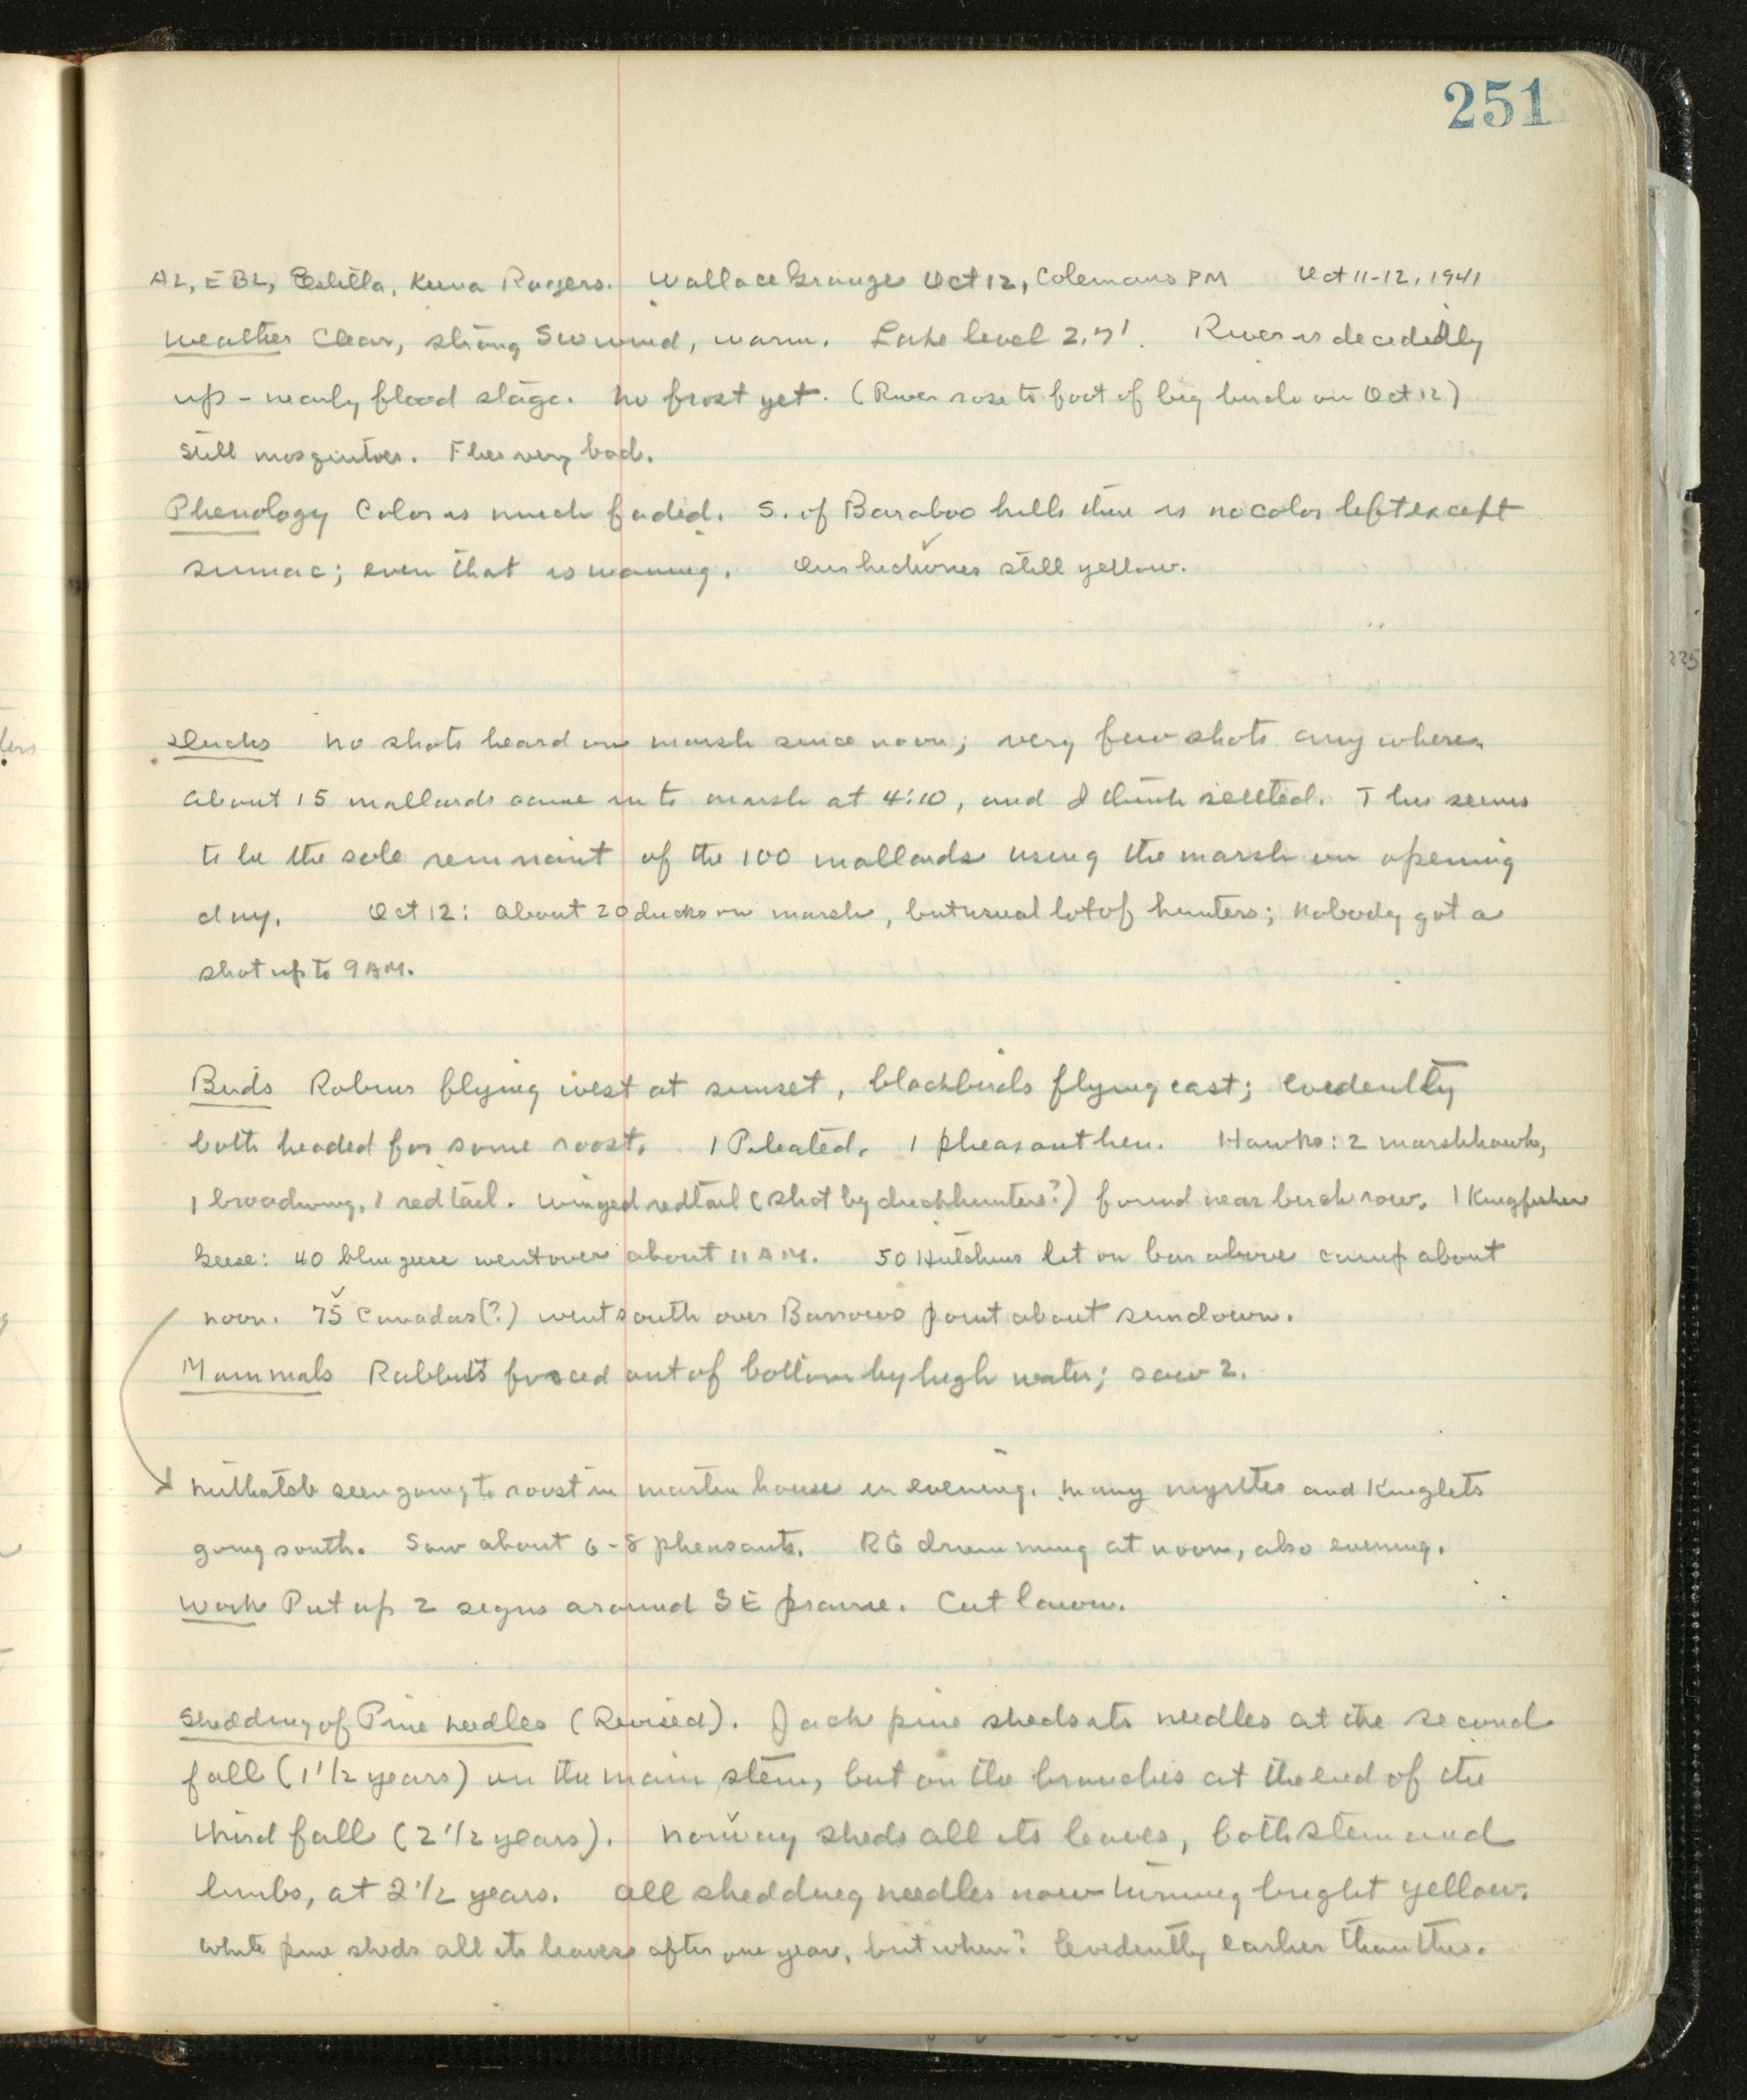 251
AL, EBL, Estella, Kuna Rogers. Wallace Grange Oct 12, Colemans PM Oct 11-12, 1941
Weather Clear, strong SW wind, warm. Lake level 2.7'. River is decidedly
up - nearly flood stage. No frost yet. (River rose to foot of big birch on Oct 12)
Still mosquitoes. Flies very bad.
Phenology Color is much faded. S. of Baraboo hills there is no color left except
sumac; even that is waning. Our hickories still yellow.
Ducks No shots heard on marsh since noon; very few shots anywhere.
About 15 mallards came into marsh at 4:10, and I think settled. This seems
to be the sole remnant of the 100 mallards using the marsh on opening
day. Oct 12: About 20 ducks on marsh, but usual lot of hunters; nobody got a
shot up to 9 AM.
Birds Robins flying west at sunset, blackbirds flying east; evidently
both headed for some roost. 1 Pileated. 1 pheasant hen. Hawks: 2 marshhawks,
1 broadwing, 1 redtail. Winged redtail (shot by duckhunters?) found near birch row. 1 Kingfisher
Geese: 40 blue geese went over about 11 AM. 50 Hutchins lit on bar above camp about
noon. 75 Canadas(?) went south over Barrows point about sundown.
Mammals Rabbits forced out of bottom by high water; saw 2.
Nuthatch seen going to roost in martin house in evening. Many myrtles and Kinglets
going south. Saw about 6-8 pheasants. RG drumming at noon, also evening.
Work Put up 2 signs around SE prairie. Cut lawn.
Shedding of Pine Needles (Revised). Jack pine sheds its needles at the second
fall (1 1/2 years) on the main stem, but on the branches at the end of the
third fall (2 1/2 years). Norway sheds all its leaves, both stem and
limbs, at 2 1/2 years. All shedding needles now turning bright yellow.
White pine sheds all its leaves after one year, but when? Evidently earlier than this.
225